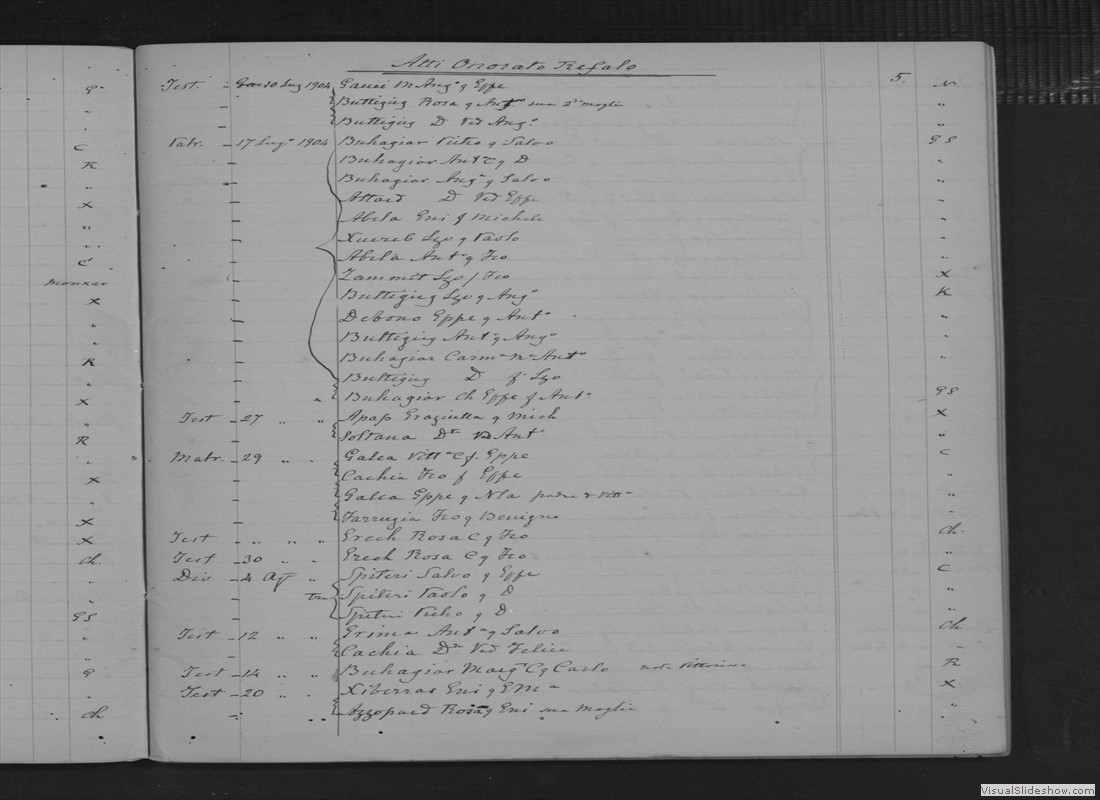 G
C
R
X
C
Monxar
X
R
X
R
X
X
X
Ch.
GS
G
Ch
Atti Onorato Refalo
5.
Test. 10 Lug 1904 Gauci M Ang.a q Eppe N
Buttigieg Rosa q Ant.o sua 2.a moglie "
Buttigieg D Ved Ang.o "
17 Lug.o 1904 Buhagiar Pietro q Salvo GS
Buhagiar Ant C q D "
Buhagiar Ang.o q Salvo "
Attard D Ved Eppe "
Abela Eni q Michele "
Xuereb Lzo q Paolo "
Abela Ant.o q Fco "
Zammit Lzo f Fco X
Buttigieg Lzo q Ang.o K
Debono Eppe q Ant.o "
Buttigieg Ant.o q Ang.o "
Buhagiar Carm.a Ant.o "
Buttigieg D f Lzo "
Buhagiar Ch Eppe f Ant.o GS
Test 27 " " Apap Graziulla q Mich X
Soltana D.a Ved Ant.o "
Matr. 29 " " Galea Vitt.a C f. Eppe C
Cachia Fco f Eppe "
Galea Eppe q Nla padre "
Farrugia Fco q Benigno "
Test " " " Grech Rosa C q Fco Ch.
Test 30 " Grech Rosa C q Fco "
Div 4 Ag " Spiteri Salvo q Eppe C
Spiteri Paolo q D "
Spiteri Pietro q D "
Test 12 " " Grima Ant.a q Salvo Ch
Cachia D.a Ved Felice "
Test 14 " " Buhagiar Marg C q Carlo R
Test 20 " " Xiberras Eni q EM.a X
Azzopard Rosa q Eni sua Moglie "
VisualSlideshow.com